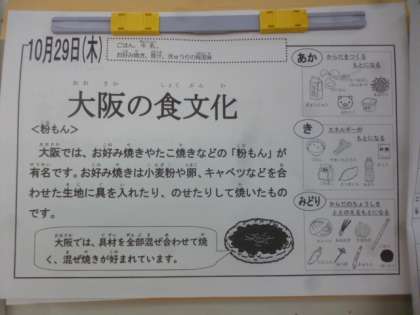 10月29日(木)
ごはん、牛乳、
大阪の食文化
<粉もん>
大阪では、お好み焼きやたこ焼きなどの「粉もん」が
有名です。お好み焼きは小麦粉や卵、キャベツなどを合
わせた生地に具を入れたり、のせたりして焼いたもの
です。
大阪では、具材を全部混ぜ合わせて焼
く、混ぜ焼きが好まれています。
あか
からだをつくる
もとになる
き
エネルギーの
もとになる
みどり
からだのちょうしを
ととのえるもとになる